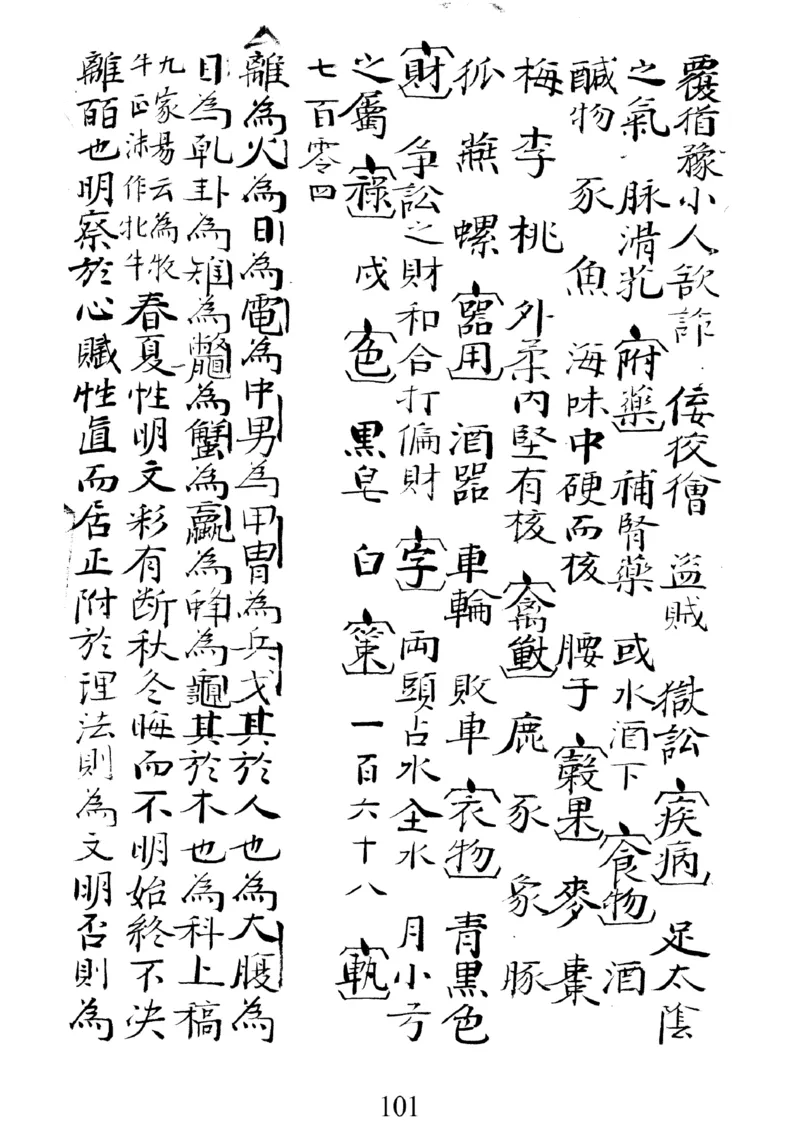 覆猶豫小人欲詐 倭狡獪 盜賊 獄訟 疾病 足太陰
之氣 脉滑芤 附藥 補腎藥 或水酒下 食物 酒
醎物 豕 魚 海味中硬而核 腰子 穀果 麥 棗
梅 李 桃 外柔内堅有核 禽獸 鹿 豕 象 豚
狐 蕪 螺 器用 酒器 車輪 敗車 衣物 青黑色
財 爭訟之財和合打偏財 字 兩頭占水仝水 月小弓
之屬 祿 戌 色 黑皂 白 策 一百六十八 軌
七百零四
離為火為日為電為中男為甲冑為兵戈其於人也為大腹為
目為乹卦為雉為鼈為蟹為蠃為蜯為龜其於木也為科上槁
九家易云為牧
牛正沬作牝牛春夏性明文彩有断秋冬晦而不明始終不决
離皕也明察於心賦性直而居正附於理法則為文明否則為
101